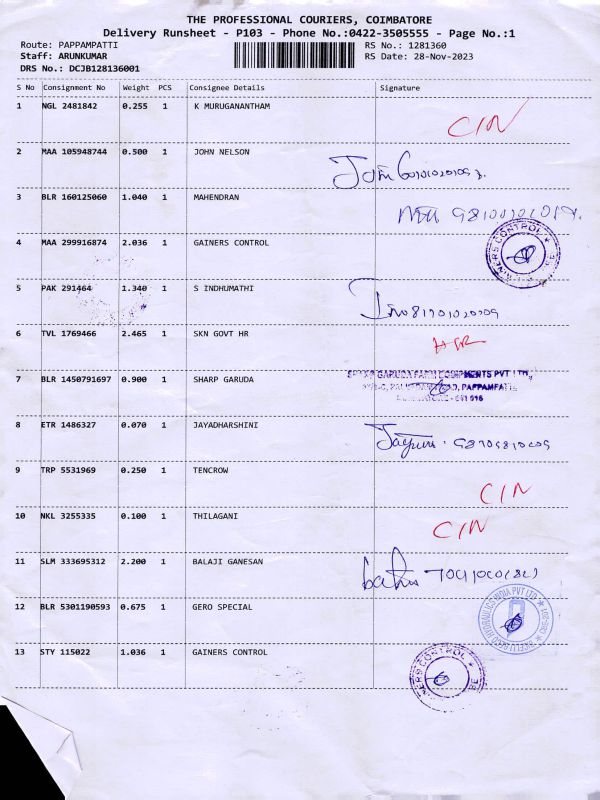 THE PROFESSIONAL COURIERS, COIMBATORE
Delivery Runsheet - P103 - Phone No.:0422-3505555 - Page No.:1
Route: PAPPAMPATTI
RS No.: 1281360
Staff: ARUNKUMAR
RS Date: 28-Nov-2023
DRS No.: DCJB128136001
S No Consignment No Weight PCS Consignee Details Signature
1 NGL 2481842 0.255 1 K MURUGANANTHAM
CIN
2 MAA 105948744 0.500 1 JOHN NELSON
3 BLR 160125060 1.040 1 MAHENDRAN
4 MAA 299916874 2.036 1 GAINERS CONTROL
5 PAK 291464 1.340 1 S INDHUMATHI
6 TVL 1769466 2.465 1 SKN GOVT HR
7 BLR 1450791697 0.900 1 SHARP GARUDA
GARUDA FARM EQUIPMENTS PVT LTD.,
PAPPAMPATTI
8 ETR 1486327 0.070 1 JAYADHARSHINI
9 TRP 5531969 0.250 1 TENCROW
CIN
10 NKL 3255335 0.100 1 THILAGANI
CIN
11 SLM 333695312 2.200 1 BALAJI GANESAN
12 BLR 5301190593 0.675 1 GERO SPECIAL
HYDRAULICS INDIA PVT LTD
13 STY 115022 1.036 1 GAINERS CONTROL
CONTROL